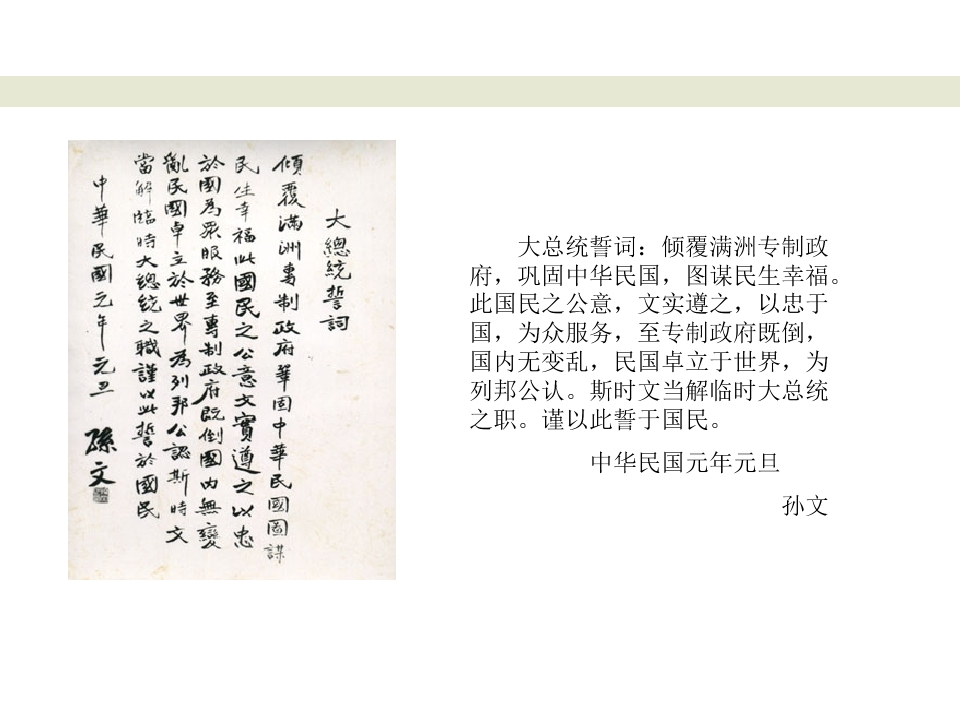 大總統誓詞
傾覆滿洲專制政府鞏固中華民國圖謀
民生幸福此國民之公意文實遵之以忠
於國為眾服務至專制政府既倒國內無變
亂民國卓立於世界為列邦公認斯時文
當解臨時大總統之職謹以此誓於國民
中華民國元年元旦 孫文
大总统誓词：倾覆满洲专制政
府，巩固中华民国，图谋民生幸福。
此国民之公意，文实遵之，以忠于
国，为众服务，至专制政府既倒，
国内无变乱，民国卓立于世界，为
列邦公认。斯时文当解临时大总统
之职。谨以此誓于国民。
中华民国元年元旦
孙文